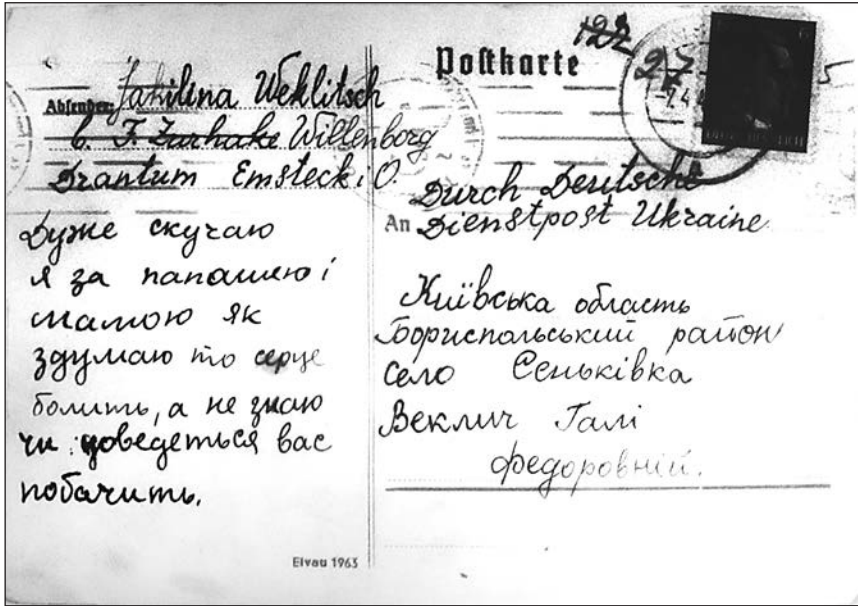 Postkarte
122
27
Absender: Jakilina Weklitsch
b. F. Zurhake Willenborg
Drantum Emsteck i. O.
Дуже скучаю
я за папашею і
мамою як
здумаю то серце
болить, а не знаю
чи доведеться вас
побачить.
Elvau 1963
Durch Deutsche
An Dienstpost Ukraine
Київська область
Бориспольський район
село Сеньківка
Веклич Галі
Федоровній.